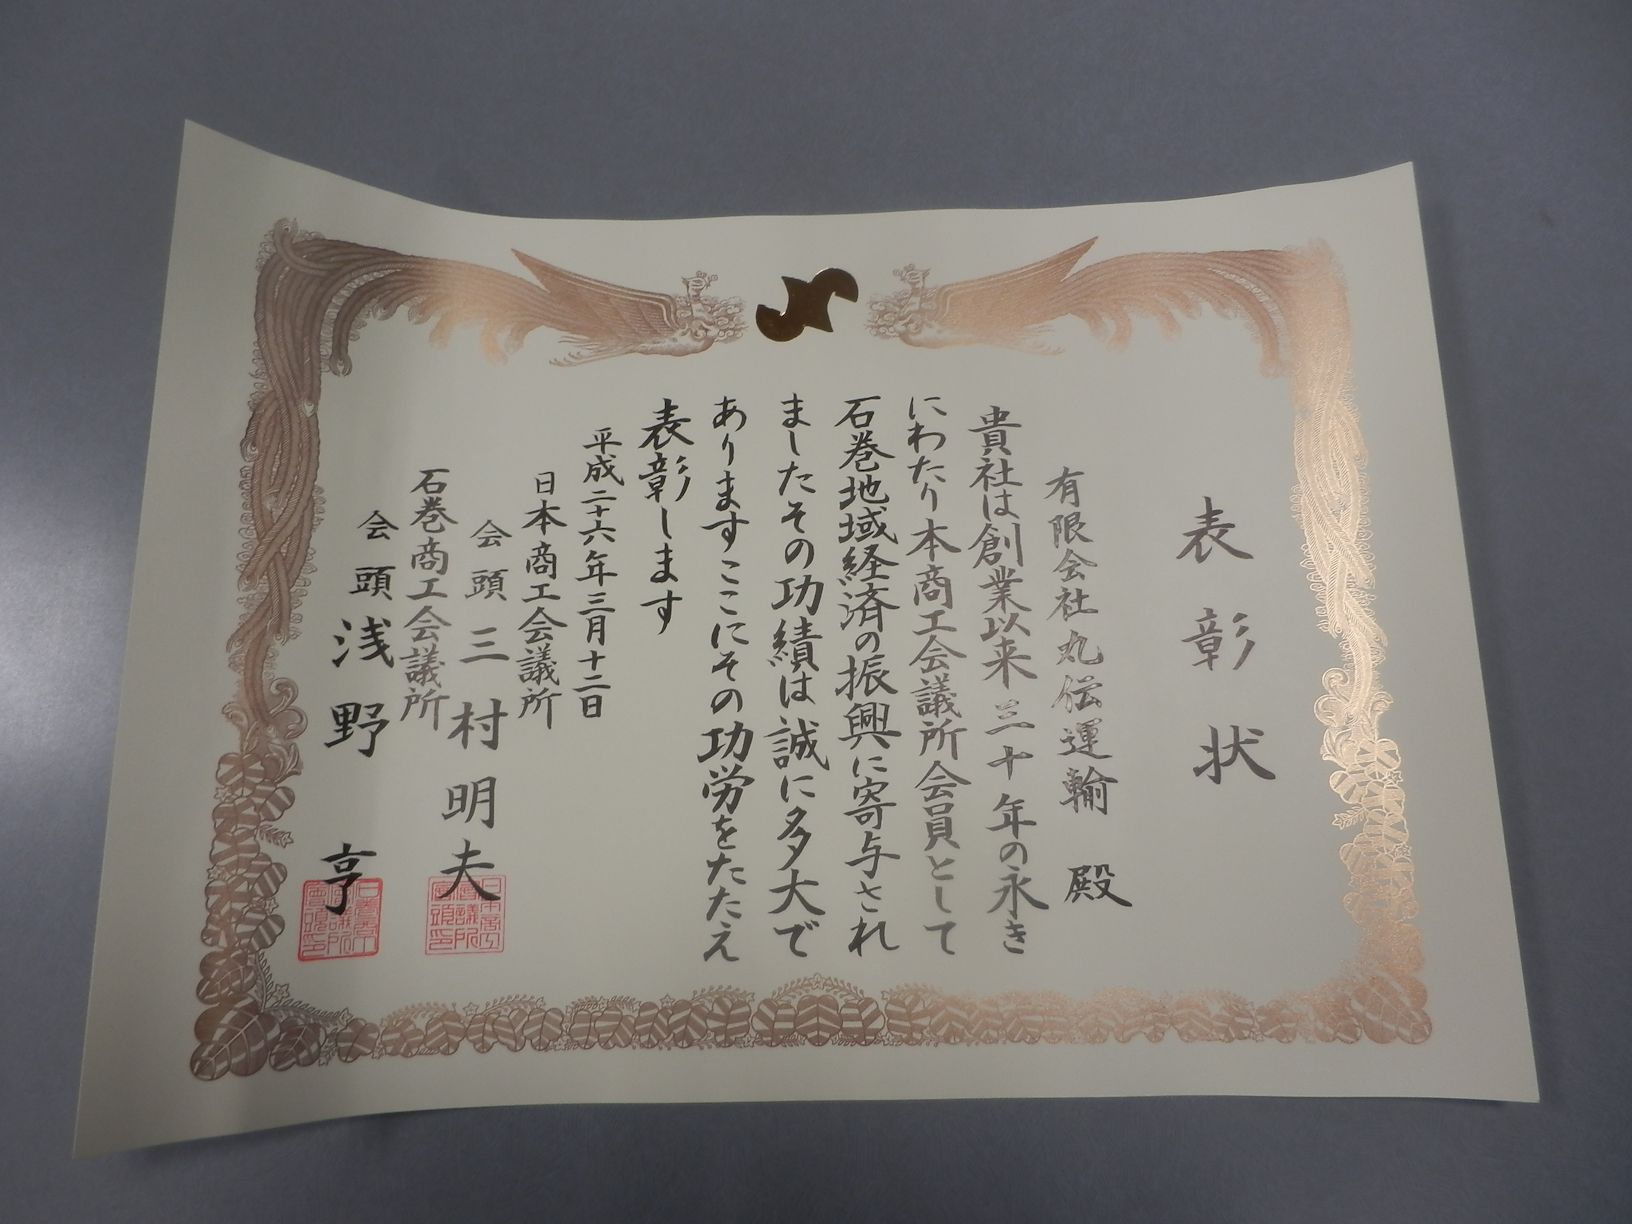 表彰状
有限会社丸伝運輸 殿
貴社は創業以来三十年の永き
にわたり本商工会議所会員として
石巻地域経済の振興に寄与され
ましたその功績は誠に多大で
ありますここにその功労をたたえ
表彰します
平成二十六年三月十二日
日本商工会議所
会頭 三村明夫
石巻商工会議所
会頭 浅野 亨